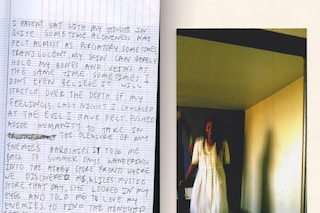 I HAVENT SAT WITH MY HONDES IN
QUITE SOMETIME. ALONENESS HAS
FELT ALMOST AS PURGATORY SOMETIMES
TRANSLUCENT, MY SKIN CAN BARELY
HOLD MY BONES AND VEINS AT
THE SAME TIME. SOMETIMES I
DONT EVEN BELIEVE IT WILL
STRETCH OVER THE DEPTH OF MY
FEELINGS. LAST NIGHT I CHUCKLED
AT THE EVIL I HAVE FELT. PUSHED
ASIDE HUMANITY TO TAKE IN
THE PLEASURE OF MY
ENEMIES HARDSHIPS. IT TOLD ME
BACK TO SUMMER DAYS WANDERING
INTO THE STORE FRONT WHERE
WE DISCOVERED MYSTIC
MORE THAT DAY, SHE LOOKED IN MY
EYES AND TOLD ME TO LOVE MY
ENEMIES TO FIND THE HONEYED